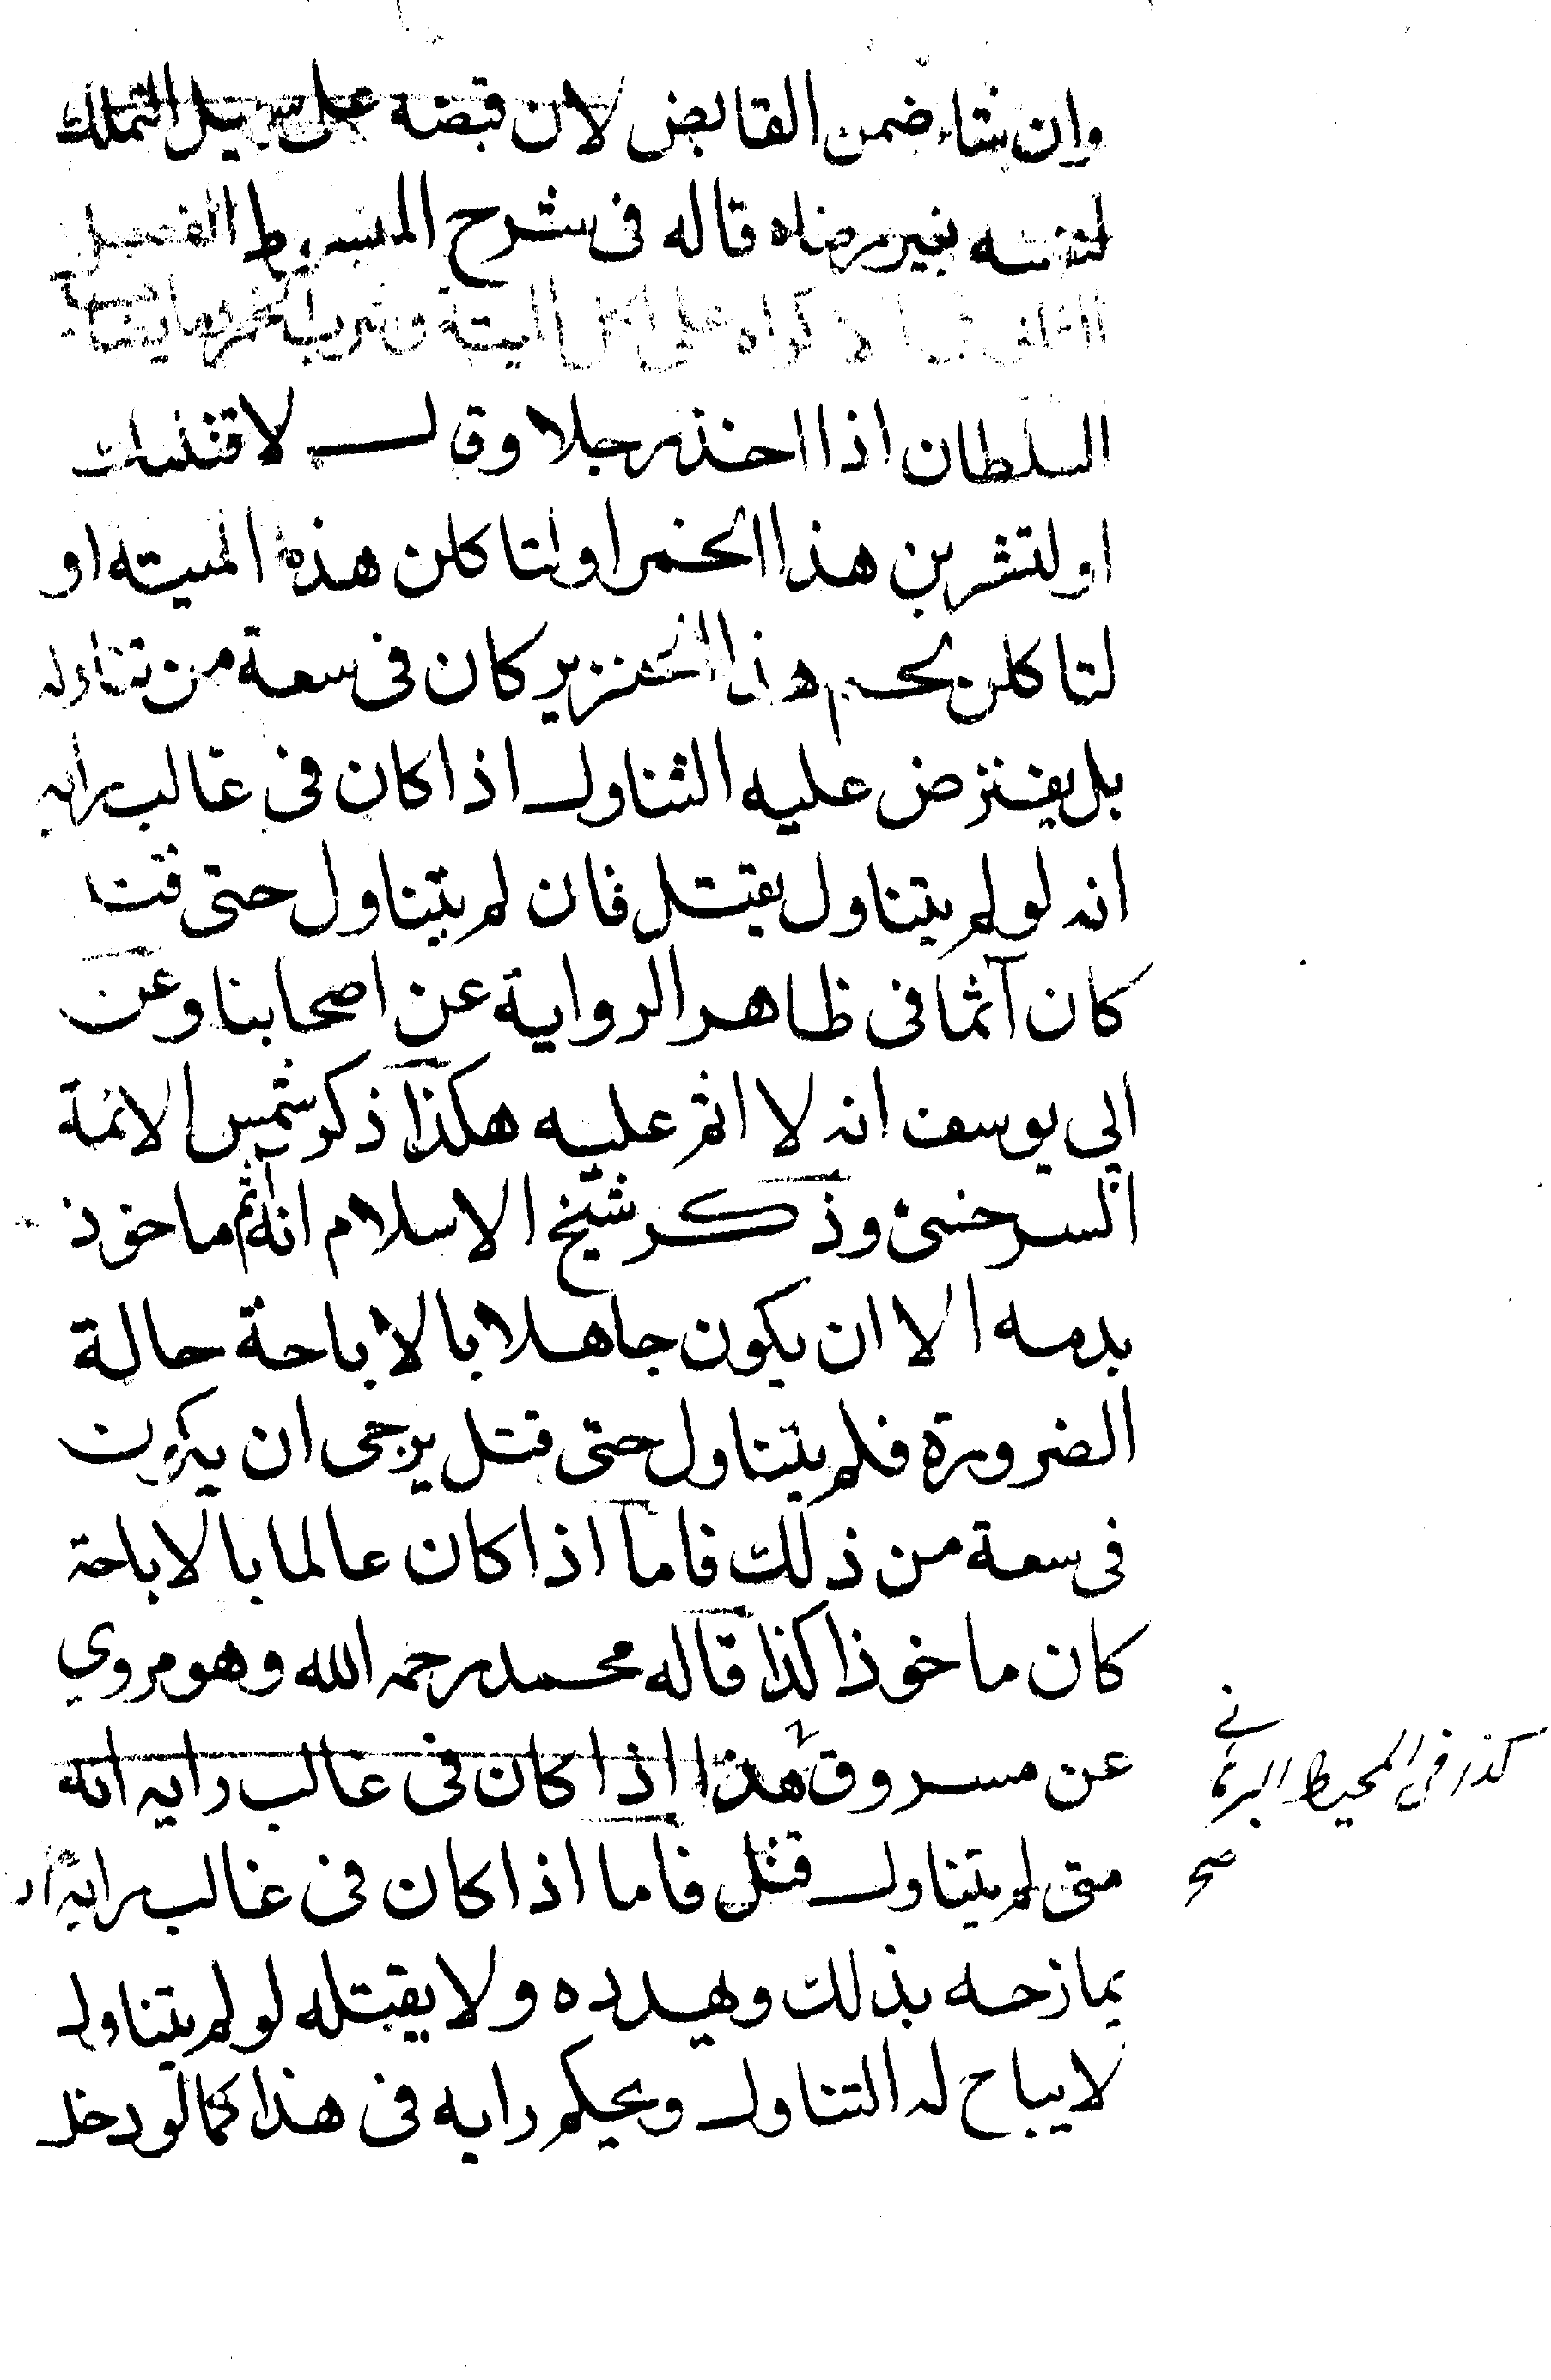 وان شاء ضمن القابض لان قبضه على سبيل التملك
لنفسه بغير رضاه قاله فى شرح المبسوط الفصل
الثانى فى الاكراه على اكل الميتة وشرب الخمر وما يضا
السلطان اذا اخذ رجلا وقال لاقتلنك
او لتشربن هذا الخمر او لتاكلن هذه الميته او
لتاكلن لحم هذا الخنزير كان فى سعة من تناوله
بل يفترض عليه التناول اذا كان فى غالب رايه
انه لو لم يتناول يقتل فان لم يتناول حتى قتل
كان آثما فى ظاهر الرواية عن اصحابنا وعن
ابي يوسف انه لا اثم عليه هكذا ذكر شمس الائمة
السرخسى وذكر شيخ الاسلام انه آثم ماخوذ
بدمه الا ان يكون جاهلا بالاباحة حالة
الضرورة فلم يتناول حتى قتل يرجى ان يكون
فى سعة من ذلك فاما اذا كان عالما بالاباحة
كان ماخوذا كذا قاله محمد رحمه الله وهو مروي
عن مسروق هذا اذا كان فى غالب رايه انه
متى لم يتناول قتل فاما اذا كان فى غالب رايه انه
يمازحه بذلك ويهدده ولا يقتله لو لم يتناول
لا يباح له التناول ويحكم رايه فى هذا كما لو دخل
كذا فى المحيط البرهانى
صح